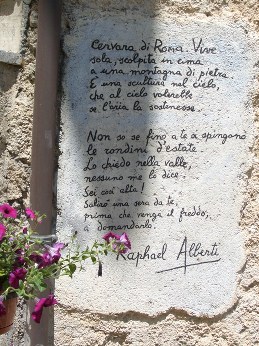 Cervara di Roma. Vive
sola, scolpita in cima
a una montagna di pietra.
È una scultura nel cielo,
che al cielo volerebbe
se l'aria la sostenesse.
Non so se fino a te si spingono
le rondini d'estate.
Lo chiedo nella valle,
nessuno me lo dice.
Sei così alta!
Salirò una sera da te,
prima che venga il freddo,
a domandarlo.
Raphael Alberti